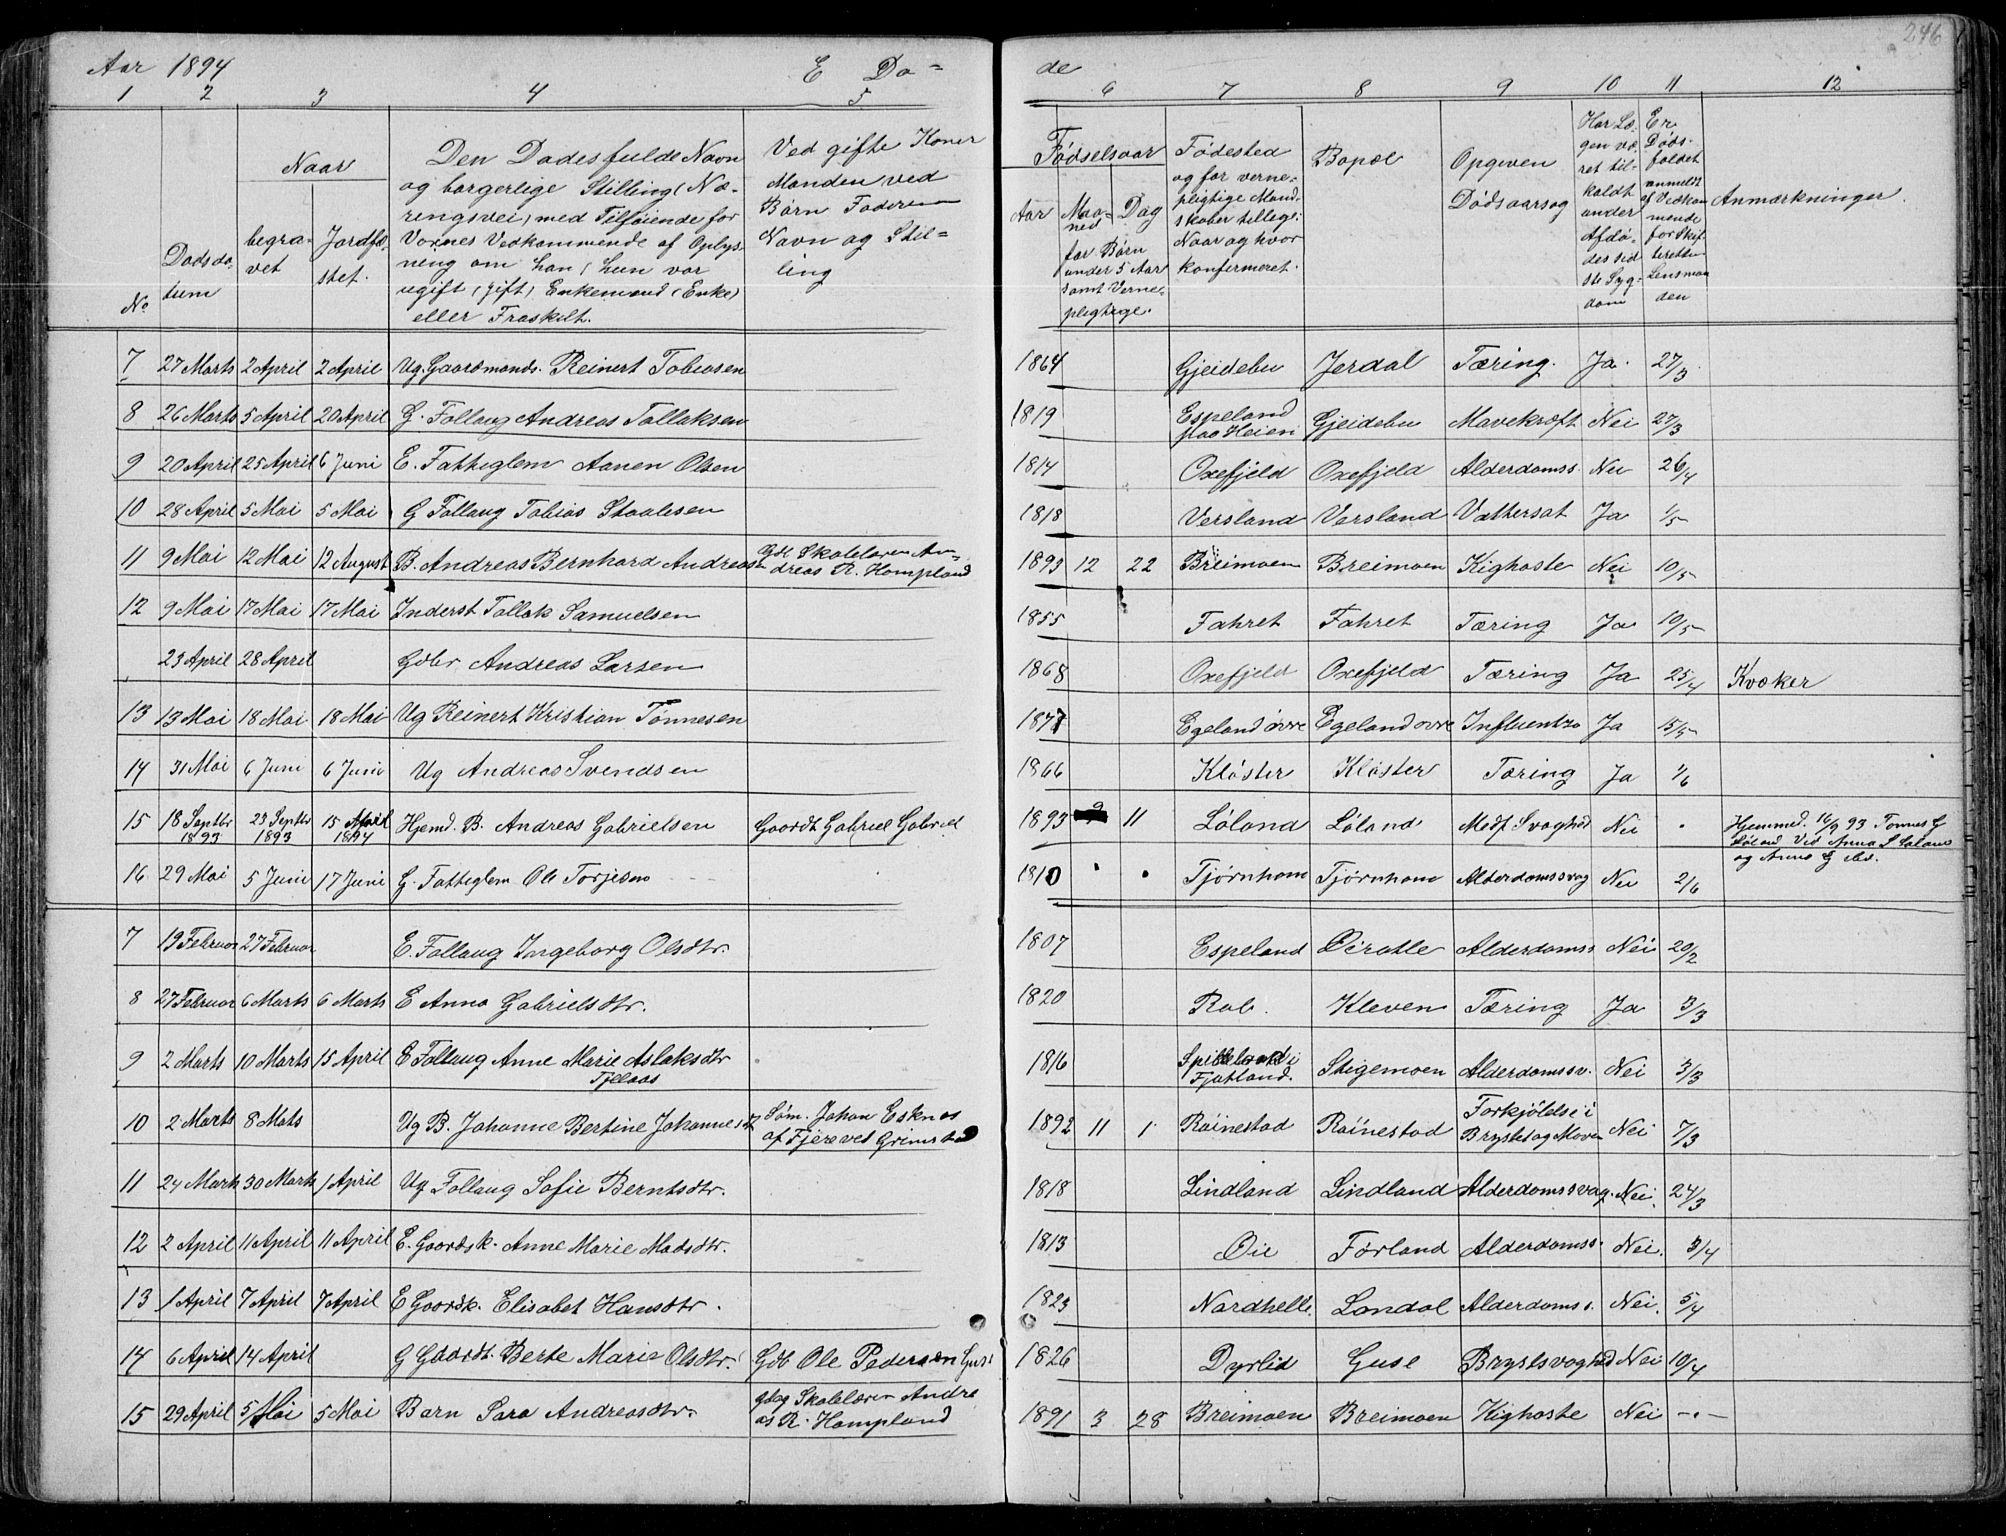 Aar 1894 E Dø= de 246
1 2 3 4 5 6 7 8 9 10 11 12
No
Dødsda-
tum
Naar
begra-
vet
Jordfæ-
stet.
Den Dødes fulde Navn
og borgerlige Stilling (Næ-
ringsvei) med Tilføiende for
Voxnes Vedkommende af Oplys-
ning om han (hun var
ugift (gift) Enkemand (Enke)
eller Fraskilt.
Ved gifte Koner
Manden, ved
Børn Faderens
Navn og Stil=
ling
Fødselsaar
Aar
Maa-
ned
Dag
for Børn
under 5 Aar
samt Verne-
pligtige.
Fødested
og for verne-
pligtige Mand-
skaber tillige:
Naar og hvor
konfirmeret.
Bopæl
Opgiven
Dødsaarsag
Har Læ-
gen væ-
ret til-
kaldt
under
Afdø-
des sid
ste Syg-
dom
Er
Døds-
faldet
anmeldt
af Vedkom
mende
for Skif
teretten
Lensman
den
Anmærkninger.
7 27 Marts 2 April 2 April Ug. Gaardmands. Reinert Tobiasen 1864 Gjeidebu Jerdal Tæring. Ja. 27/3
8 26 Marts 5 April 20 April G. Follaug Andreas Tollaksen 1819 Espeland paa Heien Gjeidebu Mavekræft Nei 27/3
9 20 April 25 April 6 Juni E. Fattiglem Aanen Olsen 1814 Oxefjeld Oxefjeld Alderdomss. Nei 26/4
10 28 April 5 Mai 5 Mai G Follaug Tobias Staalesen 1818 Versland Versland Vattersot Ja 1/5
11 9 Mai 12 Mai 12 August B. Andreas Bernhard Andreasen Gbr Skolelæren An- 1893 12 22 Breimoen Breimoen Kighoste Nei 10/5
dreas R. Hompland
12 9 Mai 17 Mai 17 Mai Inderst Tollak Samuelsen 1855 Fahret Fahret Tæring Ja 10/5
23 April 28 April Gdbr Andreas Larsen 1868 Oxefjeld Oxefjeld Tæring Ja 25/4 Kvæker
13 13 Mai 18 Mai 18 Mai Ug Reinert Kristian Tønnesen 1877 Egeland øvre Egeland øvre Influentza Ja 15/5
14 31 Mai 6 Juni 6 Juni Ug Andreas Svendsen 1866 Kløster Kløster Tæring Ja 1/6
15 18 Septbr 1893 23 Septbr 1893 15 April 1894 Hjemd. B. Andreas Gabrielsen Gaardb Gabriel Gabriel 1893 9 11 Løland Løland Medf. Svaghed Nei Hjemmed. 16/9 93 Tønnes G
Løland Ved Anna S Løland
og Anna G ibd.
16 29 Mai 5 Juni 17 Juni G. Fattiglem Ole Torjesen 1810 Tjørnhom Tjørnhom Alderdomssvag Nei 2/6
7 19 Februar 27 Februar E. Follaug Ingeborg Olsdtr. 1807 Espeland Østatle Alderdomss Nei 20/2
8 27 Februar 6 Marts 6 Marts E Anna Gabrielsdtr. 1820 Rob. Kleven Tæring Ja 3/3
9 2 Marts 10 Marts 15 April E Follaug Anne Marie Aslaksdtr 1816 Fjotland. Stigemoen Alderdomssv. Nei 3/3
10 2 Marts 8 Mats Ug B. Johanne Bertine Johannesd Søm. Johan 1892 11 1 Røinestad Røinestad Forkjølelse i Nei 7/3
Bryst og Maven
11 24 Marts 30 Marts 1 April Ug Follaug Sofie Berntsdtr. 1818 Lindland Lindland Alderdomssvag. Nei. 24/3
12 2 April 11 April 11 April E. Gaardsk. Anne Marie Madsdtr. 1813 Øie Førland Alderdomss. Nei. 3/4
13 1 April 7 April 7 April E Gaardk. Elisabet Hansdtr. 1823 Nardhelle Londal Alderdoms s. Nei. 5/4
14 6 April 14 April G Gaardk. Berte Marie Olsdtr. Gdb Ole Pedersen Guse 1826 Dyrlid Guse Brystsvaghed Nei 10/4
15 29 April 5 Mai 5 Mai Barn Sara Andreasdtr. Gbog Skolelæren Andre 1891 3 28 Breimoen Breimoen Kighoste Nei -.-
as R. Hompland